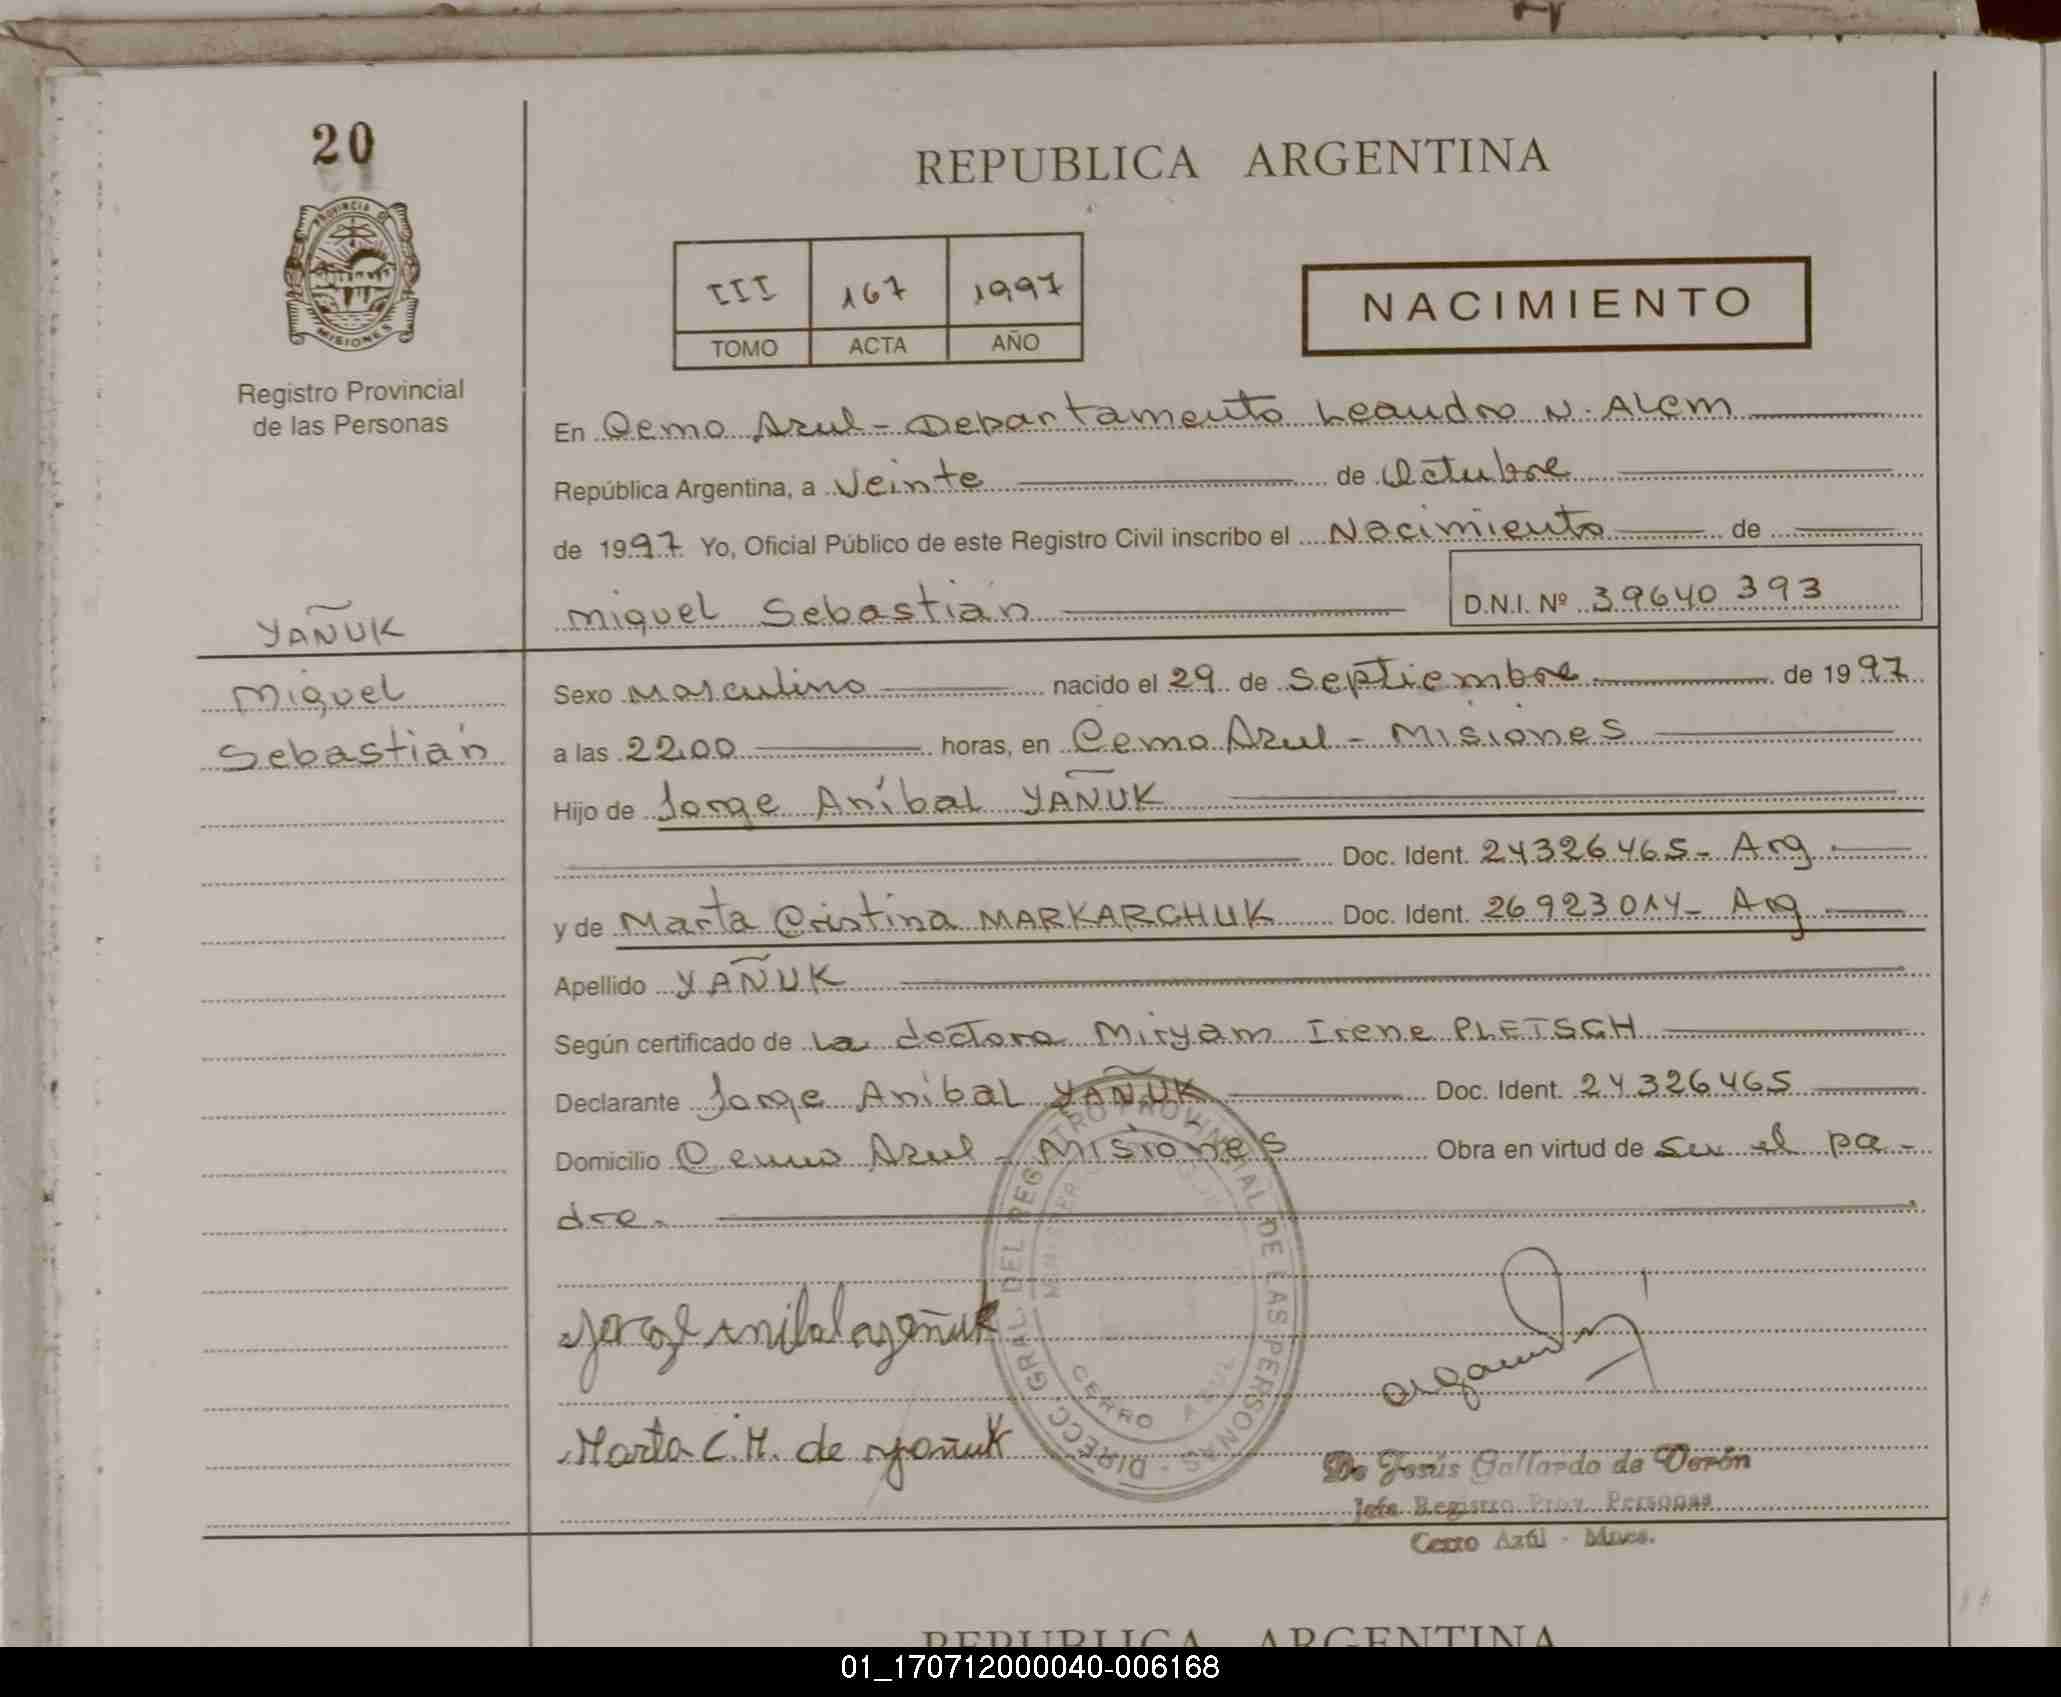 20
REPUBLICA ARGENTINA
PROVINCIA DE
MISIONES
III 167 1997
TOMO ACTA AÑO
NACIMIENTO
Registro Provincial
de las Personas
En Cerro Azul - Departamento Leandro N. Alem
República Argentina, a Veinte de Octubre
de 1997 Yo, Oficial Público de este Registro Civil inscribo el Nacimiento de
Miguel Sebastián D.N.I. Nº 39640393
YAÑUK
Miguel
Sebastián
Sexo Masculino nacido el 29 de Septiembre de 1997
a las 22,00 horas, en Cerro Azul - Misiones
Hijo de Jorge Aníbal YAÑUK
Doc. Ident. 24326465- Arg
y de Marta Cristina MARKARCHUK Doc. Ident. 26923014- Arg
Apellido YAÑUK
Según certificado de la doctora Miryam Irene PLETSCH
Declarante Jorge Aníbal YAÑUK Doc. Ident. 24326465
Domicilio Cerro Azul - Misiones Obra en virtud de ser el pa-
dre.
DIRECC. GRAL. DEL REGISTRO PROVINCIAL DE LAS PERSONAS
CERRO AZUL
Jorge Anibal yañuk
Marta C. M. de yañuk
De Jesús Gallardo de Verón
Jefe Registro Prov. Personas
Cerro Azul - Mnes.
REPUBLICA ARGENTINA
01_170712000040-006168